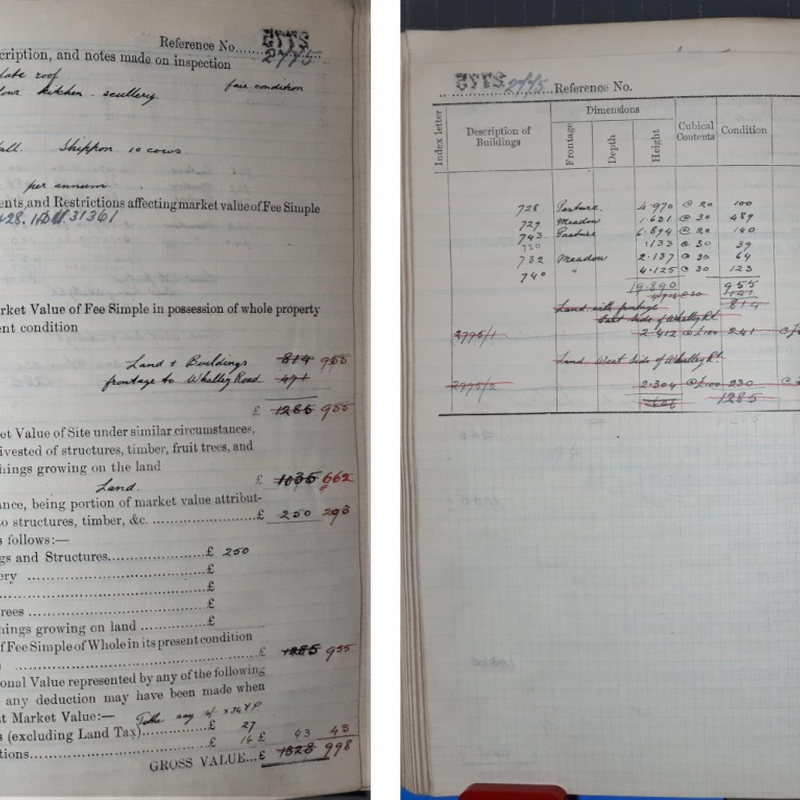 Reference No. 2775
cription, and notes made on inspection
late roof
lour kitchen - scullery. fair condition
all. Shippon 10 cows
per annum
ents, and Restrictions affecting market value of Fee Simple
31361
arket Value of Fee Simple in possession of whole property
ent condition
Land + Buildings 814 955
frontage to Whalley Road 471
£ 1285 955
et Value of Site under similar circumstances,
ivested of structures, timber, fruit trees, and
hings growing on the land
Land. £ 1035 662
ance, being portion of market value attribut-
to structures, timber, &c. £ 250 293
s follows:—
gs and Structures £ 250
ery £
£
rees £
hings growing on land £
f Fee Simple of Whole in its present condition
) £ 1285 955
onal Value represented by any of the following
any deduction may have been made when
t Market Value:—
s (excluding Land Tax) £ 27
tions £ 16 £ 43 43
GROSS VALUE...£ 1328 998
2775 Reference No.
Index letter
Description of Buildings
Dimensions
Frontage
Depth
Height
Cubical Contents
Condition
728 Pasture. 4.970 @ 20 100
729 Meadow 1.631 @ 30 489
743 Pasture 6.894 @ 20 140
730 .133 @ 30 39
732 Meadow 2.137 @ 30 64
740 " 4.125 @ 30 123
19.890 955
814
Land with frontage
East Side of Whalley Rd.
2775/1 2.412 @ £100 241
Land West Side of Whalley Rd.
2775/2 2.304 @ £100 230
1285